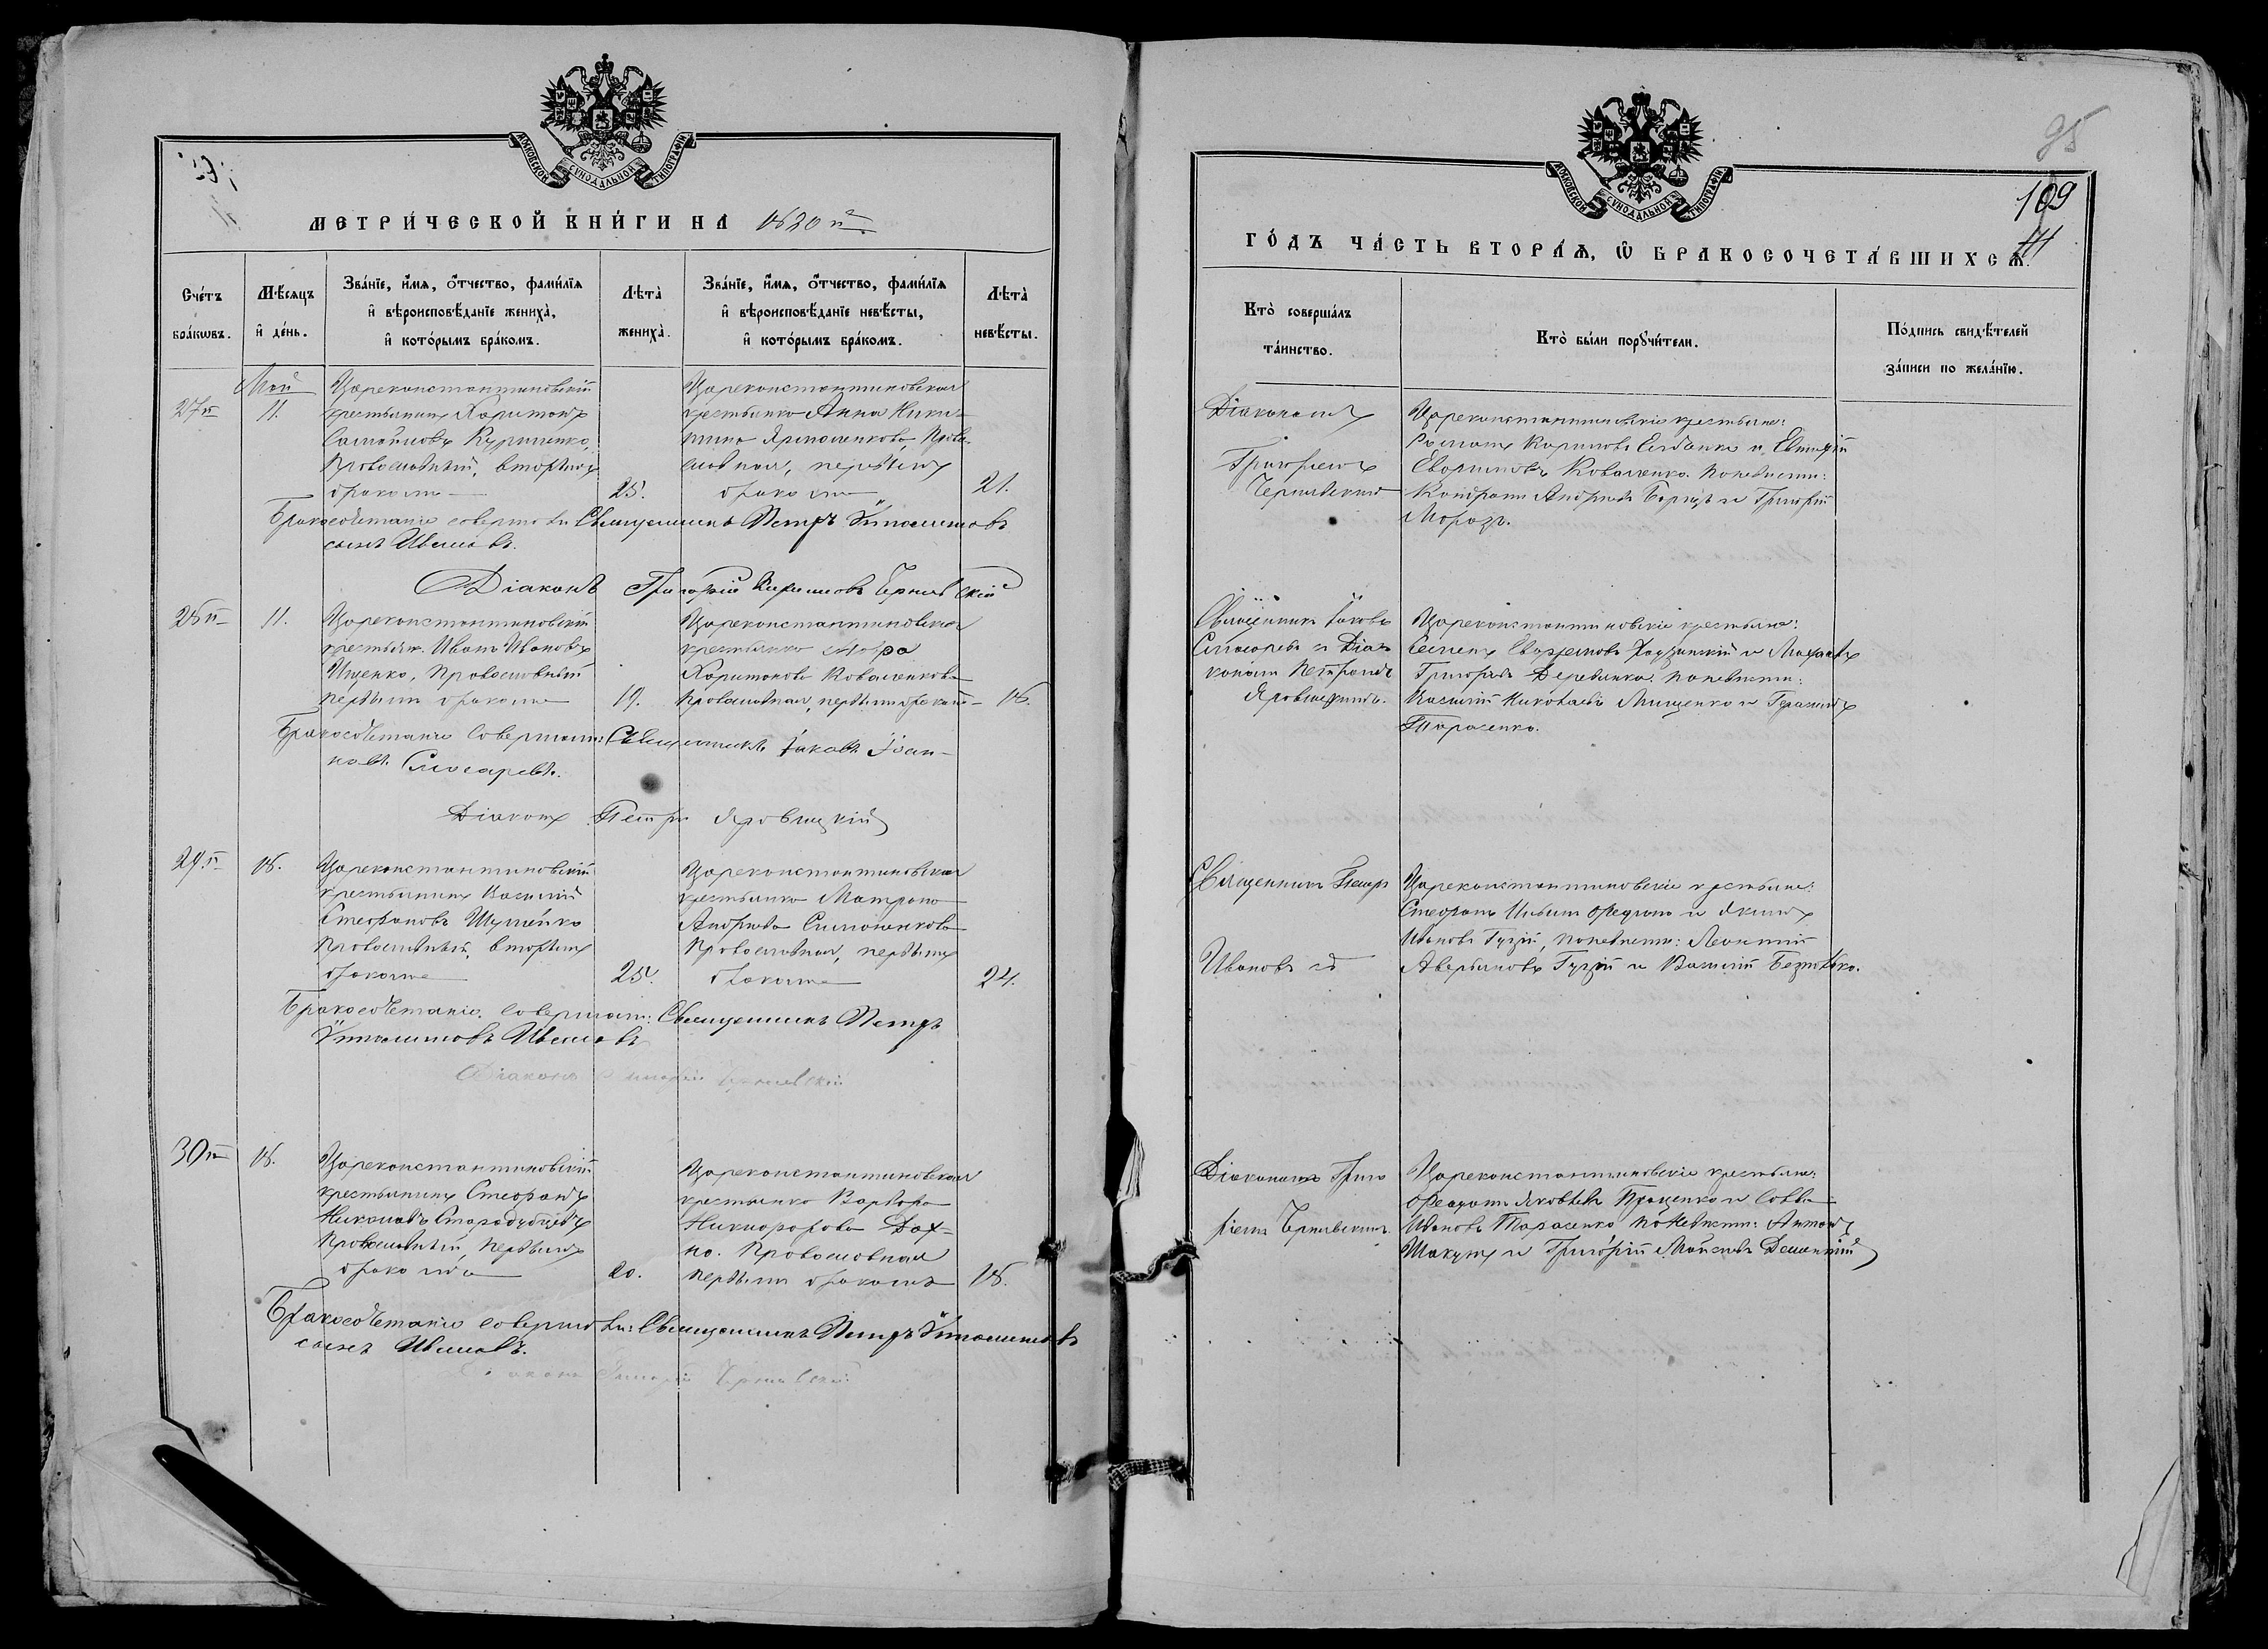 МОСКОВСКОЙ СУНОДАЛЬНОЙ ТИПОГРАФІИ
МЕТРИ́ЧЕСКОЙ КНИ́ГИ НА
Сче́тъ бра́кѡвъ.
Мѣ́сяцъ и҆ де́нь.
Зва́нїе, и҆́мѧ, ѻ҆́тчество, фами́лїѧ
и҆ вѣроисповѣ́данїе жениха̀,
и҆ кото́рымъ бра́комъ.
Лѣ́та̀ жениха̀.
Зва́нїе, и҆́мѧ, ѻ҆́тчество, фами́лїѧ
и҆ вѣроисповѣ́данїе невѣ́сты,
и҆ кото́рымъ бра́комъ.
Лѣ́та̀ невѣ́сты.
27й
Май
11.
Цареконстантиновскій
крестьянинъ Харитонъ
Самойловъ Куриленко,
Православный, вторымъ
бракомъ
25.
Цареконстантиновская
крестьянка Анна Ники-
тина Ярмоленкова, Право-
славная, первымъ
бракомъ
21.
Бракосочетаніе совершали: Священникъ Петръ Ипполитовъ
сынъ Ивановъ.
Діаконъ Григорій Чернявскій
28й
11.
Цареконстантиновскій
крестьян. Иванъ Ивановъ
Ищенко, Православный
первымъ бракомъ
19.
Цареконстантиновская
крестьянка
Харитонова Коваленкова
Православная, первымъ бракомъ
18.
Бракосочетаніе совершали: Священникъ Іаковъ Іоан-
новъ Слюсаревъ.
Діаконъ Петръ Яровицкій
29й
18.
Цареконстантиновскій
крестьянинъ Василій
Стефановъ Шулейко
Православный, вторымъ
бракомъ
25.
Цареконстантиновская
крестьянка Матрона
Андреева Симоненкова
Православная, первымъ
бракомъ
24.
Бракосочетаніе совершали: Священникъ Петръ
Ипполитовъ Ивановъ
Діаконъ Григорій Чернявскій
30й
18.
Цареконстантиновскій
крестьянинъ Стефанъ
Николаевъ Стародубцевъ
Православный, первымъ
бракомъ
20.
Цареконстантиновская
крестьянка Варвара
Никифорова Дах-
но. Православная
первымъ бракомъ
18.
Бракосочетаніе совершали: Священникъ Петръ Ипполитовъ
сынъ Ивановъ.
Діаконъ Григорій Чернявскій
95
109
МОСКОВСКОЙ СУНОДАЛЬНОЙ ТИПОГРАФІИ
ГО́ДЪ ЧА́СТЬ ВТОРА́Ѧ, Ѡ҆ БРАКОСОЧЕТА́ВШИХСѦ.
Кто̀ соверша́лъ
та́инство.
Кто̀ бы́ли порꙋчи́тели.
По́дпись свидѣ́телей
за́писи по жела́нїю.
Діакономъ
Григоріемъ
Чернявскимъ
Цареконстантиновскіе крестьяне:
Евтихій
Коваленко. по невѣсти:
Кондратъ Андреевъ и Григорій
Морозъ.
Священникъ Іаковъ
Слюсаревъ и Діа-
кономъ Петромъ
Яровицкимъ.
Цареконстантиновскіе крестьяне:
Семенъ
Григорьевъ по невѣсти:
Василій Николаевъ Мищенко и Герасимъ
Тарасенко.
Священникъ Петръ
Ивановъ
Цареконстантиновскіе крестьяне:
Стефанъ и Якимъ
Ивановъ Гузій, по невѣсти: Леонтій
Аверьяновъ Гузій и Василій
Діакономъ Григо
ріемъ Чернявскимъ
Цареконстантиновскіе крестьяне:
Яковлевъ Проценко и Савва
Ивановъ Тарасенко по невѣсти: Антонъ
и Григорій